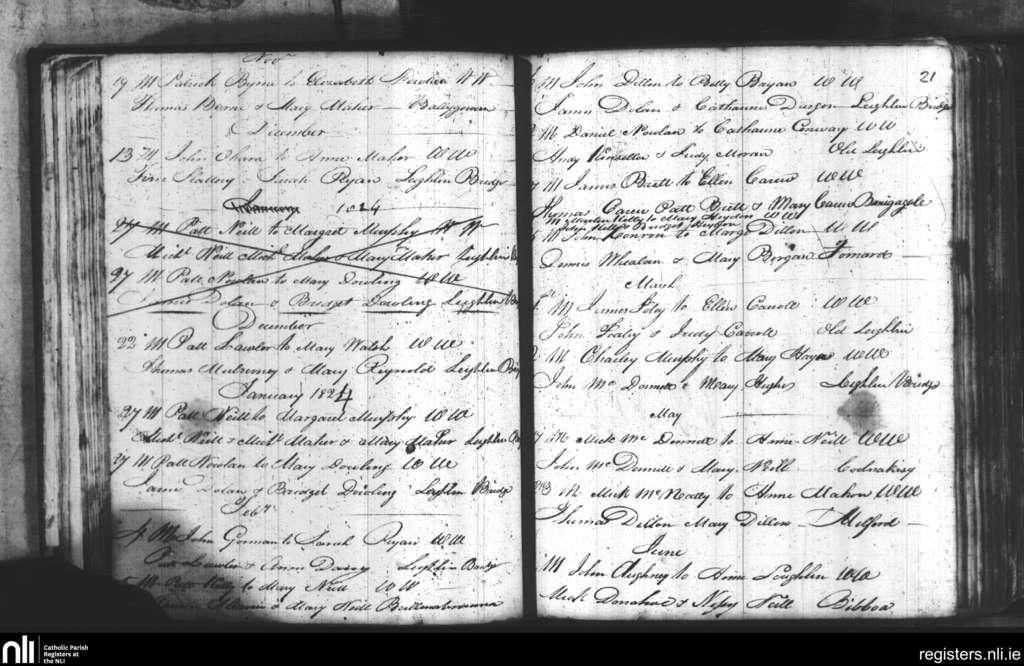 Novr
19 M Patrick Byrne to Elizabeth Nowlan W W
Thomas Berne & Mary Maher
December
13 M John Ohara to Anne Maher W W
Slattery Sarah Ryan Leghlin Bridge
January 1824
27 M Patt Neill to Margret Murphy W W
Michl Neill Mich Maher & Mary Maher Leighlin
27 M Patt Nowlan to Mary Dowling W W
James Dolan & Bridget Dowling Leighlin
December
22 M Patt Lawler to Mary Walsh W W
Thomas Mulroney & Mary Reynold Leighlin
January 1824
27 M Patt Neill to Margaret Murphy W W
Michl Neill & Michl Maher & Mary Maher Leighlin
27 M Patt Nowlan to Mary Dowling W W
Dolan & Bridget Dowling Leighlin Bridge
Feby
M John Gorman to Sarah Ryan W W
Patt Lawlor & Darcy Leighlin Bridge
M Patt Kelly to Mary Neill W W
& Mary Neill
21
M John Dillon to Betty Bryan W W
James Dolan & Catharine Leighlin Bridge
M Daniel Nowlan to Catharine Conway W W
Andy Kinsella & Judy Moran Old Leighlin
M James Brett to Ellen Carew W W
Thomas Carew Patt Brett & Mary Carew
M Martin Kelly to Mary Heydon W W
John Kelly & Bridget Heydon
M John to Margt Dillon W W
Dennis Whealan & Mary Bergan
March
M James Foley to Ellen Carroll W W
John & Judy Carroll Old Leighlin
M Charley Murphy to Mary Hayes W W
John Mc Donnell & Meary Hughes Leighlin Bridge
May
M Mick Mc Donnell to Anne Neill W W
John Mc Donnell & Mary Neill
23 M Mick Mc Nally to Anne Mahon W W
Thomas Dillon Mary Dillon Milford
June
M John Aughney to Anne Loughlin W W
Mick Donahoe & Neill Bibboa
nli Catholic Parish
Registers at
the NLI
registers.nli.ie